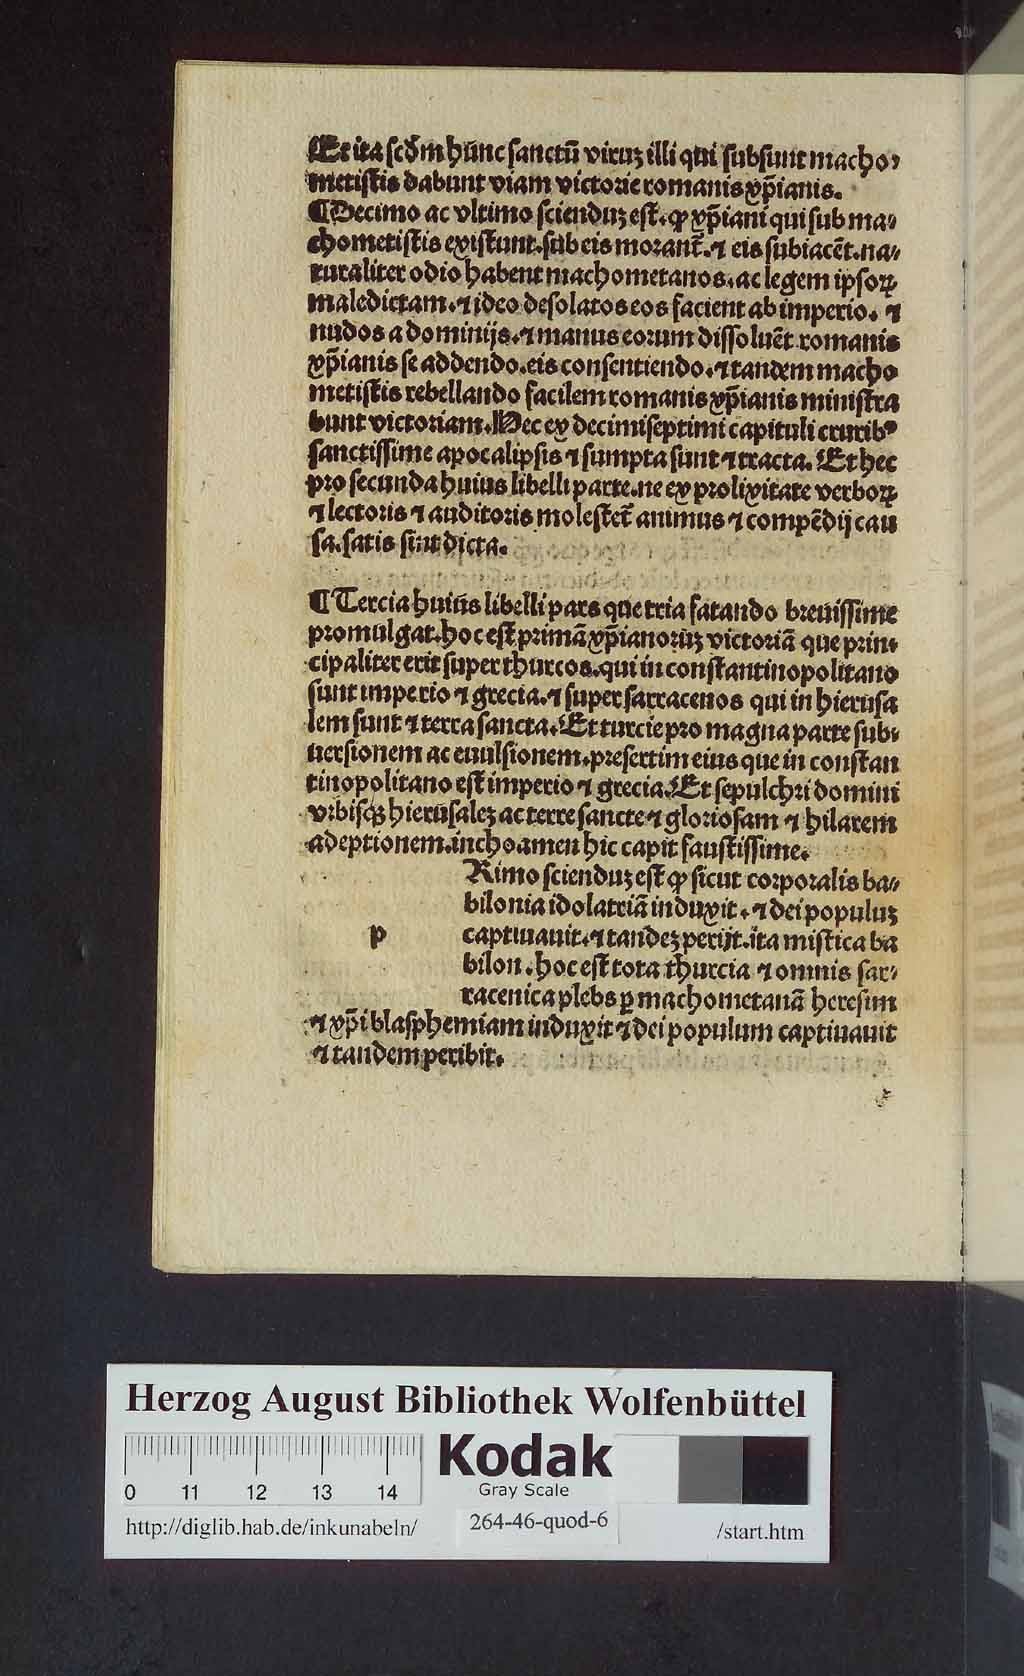 Et ita scd̄m hūnc sanctū viruꝫ illi qui subsunt macho⸗
metistis dabunt viam victorie romanis xp̄ianis.
¶ Decimo ac vltimo scienduꝫ est. ꝙ xp̄iani qui sub ma⸗
chometistis existunt. sub eis morant̄. ⁊ eis subiacēt. na⸗
turaliter odio habent machometanos. ac legem ipsoꝝ
maledictam. ⁊ ideo desolatos eos facient ab imperio. ⁊
nudos a dominijs. ⁊ manus eorum dissoluēt romanis
xp̄ianis se addendo. eis consentiendo. ⁊ tandem macho
metistis rebellando facilem romanis xp̄ianis ministra
bunt victoriam. Hec ex decimiseptimi capituli crurib⁹
sanctissime apocalipsis ⁊ sumpta sunt ⁊ tracta. Et hec
pro secunda huius libelli parte. ne ex prolixitate verboꝝ
⁊ lectoris ⁊ auditoris molestet̄ animus ⁊ compēdij cau
sa. satis sint dicta.
¶ Tercia huiūs libelli pars que tria fatando breuissime
promulgat. hoc est primā xp̄ianoruꝫ victoriā que prin⸗
cipaliter erit super thurcos. qui in constantinopolitano
sunt imperio ⁊ grecia. ⁊ super sarracenos qui in hierusa
lem sunt ⁊ terra sancta. Et turcie pro magna parte sub⸗
uersionem ac euulsionem. presertim eius que in constan
tinopolitano est imperio ⁊ grecia. Et sepulchri domini
vrbisqꝫ hierusaleꝫ ac terre sancte ⁊ gloriosam ⁊ hilarem
adeptionem. inchoamen hic capit faustissime.
Rimo scienduꝫ est ꝙ sicut corporalis ba⸗
bilonia idolatriā induxit. ⁊ dei populuꝫ
p captiuauit. ⁊ tandeꝫ perijt. ita mistica ba
bilon. hoc est tota thurcia ⁊ omnis sar⸗
racenica plebs ꝑ machometanā heresim
⁊ xp̄i blasphemiam induxit ⁊ dei populum captiuauit
⁊ tandem peribit.
Herzog August Bibliothek Wolfenbüttel
Kodak
Gray Scale
0 11 12 13 14
http://diglib.hab.de/inkunabeln/
264-46-quod-6
/start.htm